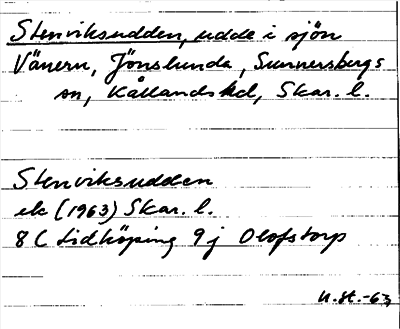 Stenviksudden, udde i sjön
Vänern, Jönslunda, Sunnersbergs
sn, Kållands hd, Skar. l.
Stenviksudden
ek (1963) Skar. l.
8 C Lidköping 9 j Olofstorp
U.st.-63